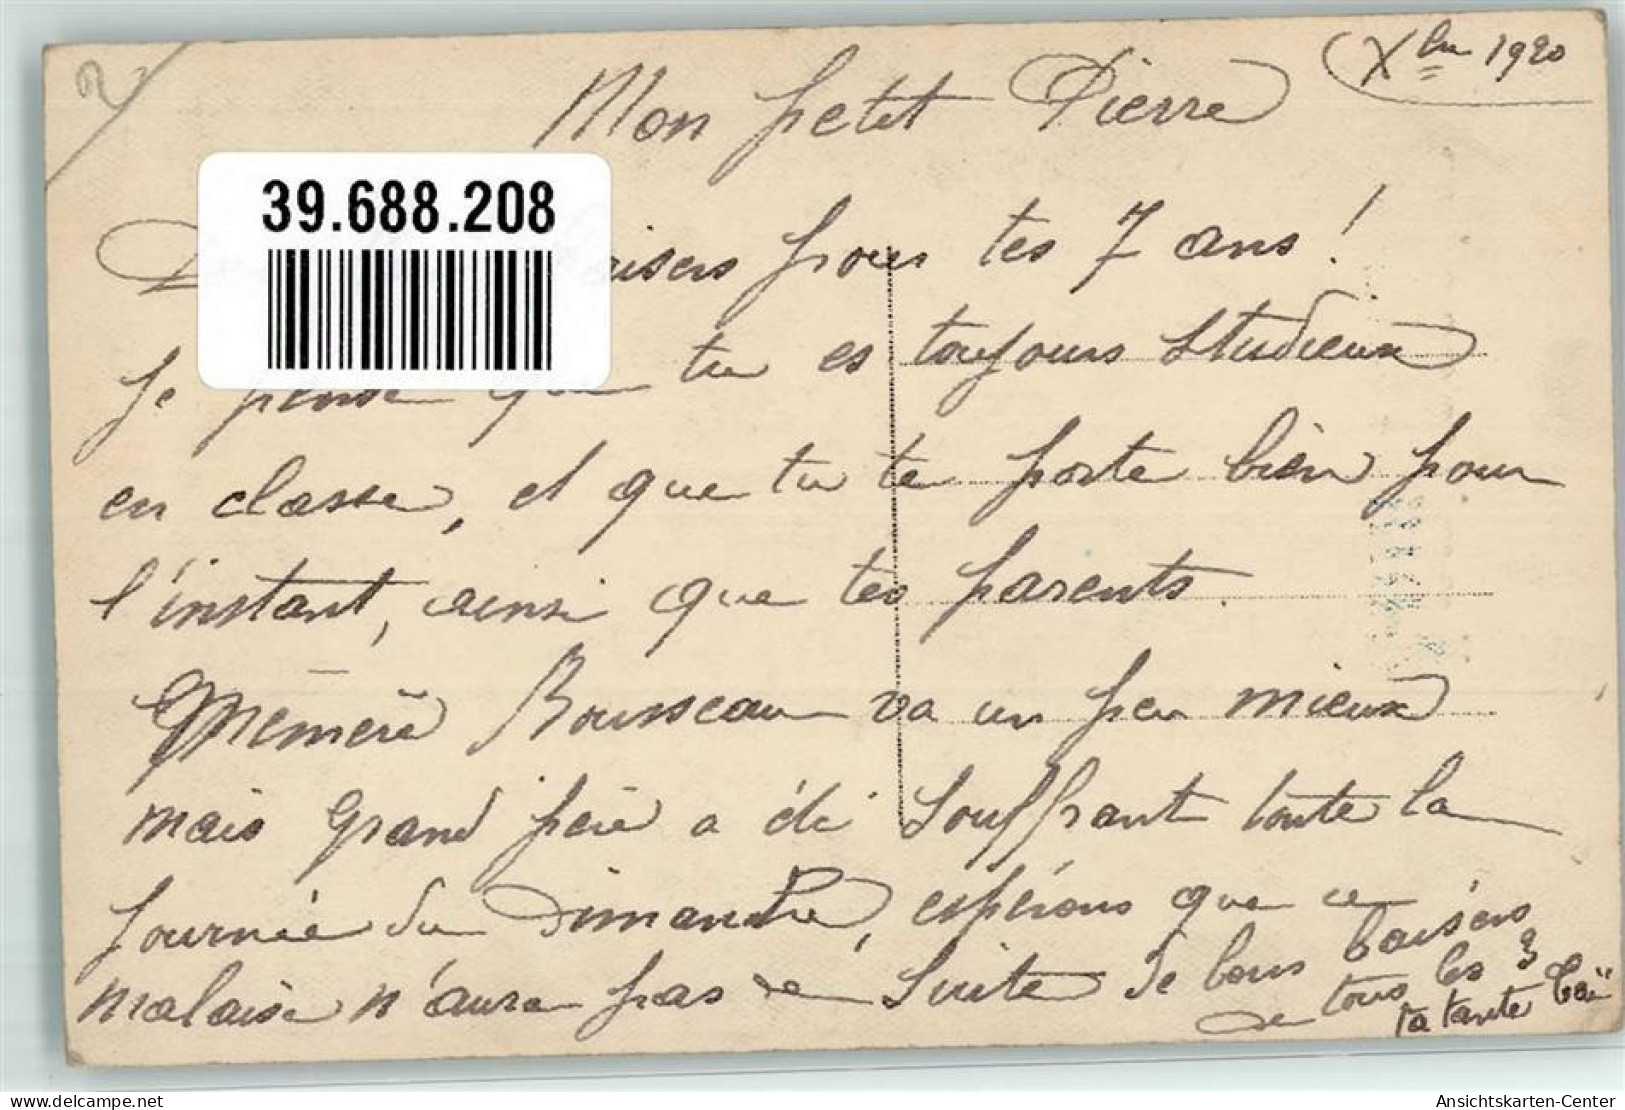 Xbre 1920
Mon petit Pierre
39.688.208
baisers pour tes 7 ans !
Je pense que tu es toujours studieux
en classe, et que tu te porte bien pour
l'instant, ainsi que tes parents.
Mémère Rousseau va un peu mieux
mais grand père a été souffrant toute la
journée du Dimanche, espérons que ce
malaise n'aura pas de suite Je vous baisers
de tous les 3
ta tante
Ansichtskarten-Center
delcampe.net